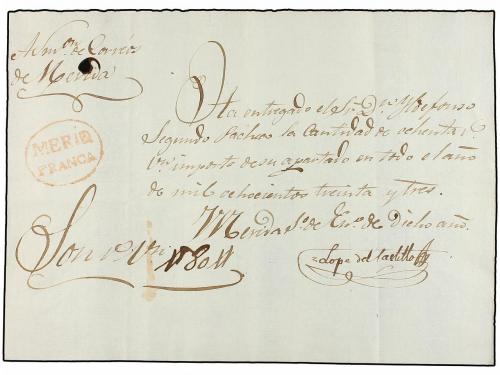 Admon. de Correos
de Merida
MERIDA
FRANCA
Ha entregado el Sr. Dn. Yldefonso
Segundo Pacheco la cantidad de ochenta
importe de su apartado en todo el año
de mil ochocientos treinta y tres.
Merida de En.o de Dicho año.
Son
Lope del Castillo